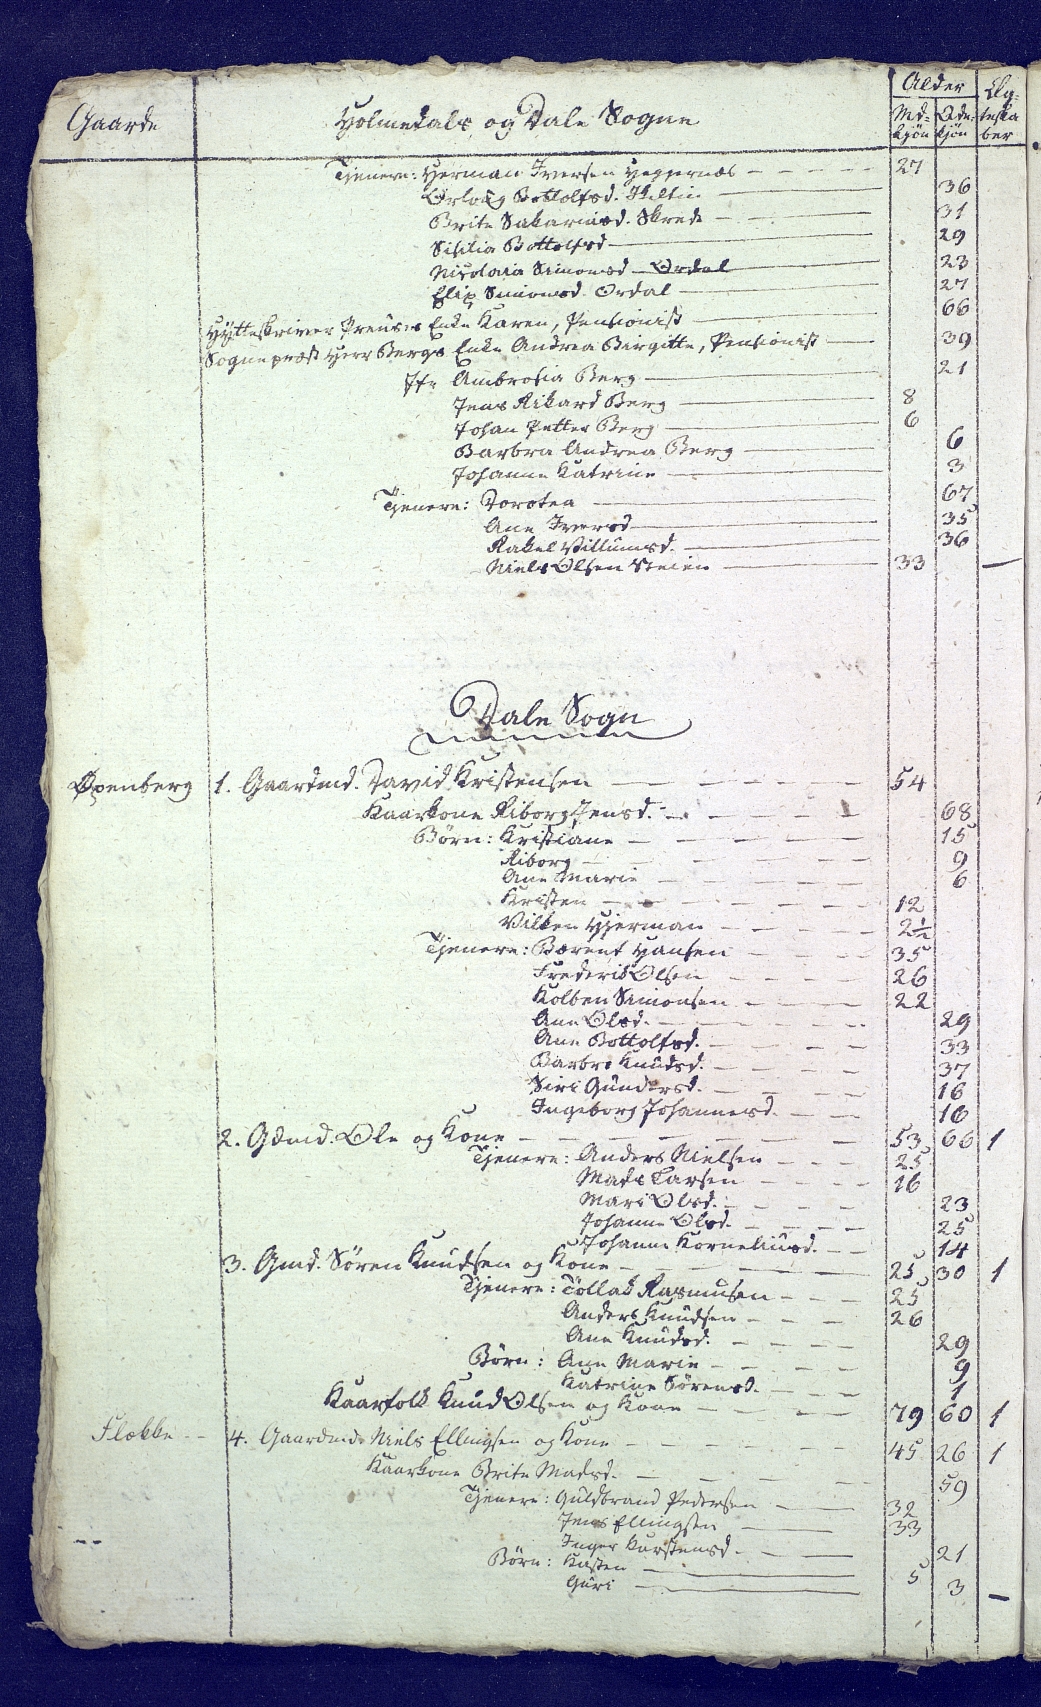 Gaarde Holmedals og Dale Sogne Alder Mdkjön Qdekjön Ægteskaber
Tjenere: Herman Iversen Heggernæs 27
Bottolfsd. 36
Brite Sakariasd. Skrede 31
Sisilia Bottolfsd 29
Nicolaia Simonsd Ordal 23
Simonsd. Ordal 27
Hytteskriver Preuses Enke Karen, Pensionist 66
Sognepræst Herr Bergs Enke Andrea Birgitte, Pensionist 39
Jfr Ambrosia Berg 21
Jens Rikard Berg 8
Johan Petter Berg 6
Barbra Andrea Berg 6
Johanne Katrine 3
Tjenere: Dorotea 67
Ane Iversd 35
Rakel Villumsd. 36
Niels Olsen Steien 33 —
Dale Sogn
Øpenberg 1. Gaardmd. David Kristensen 54
Kaarkone Riborg Jensd. 68
Börn: Kristiane 15
Riborg 9
Ane Marie 6
Kristen 12
Vilken Hjerman 2½
Tjenere: Bærent Hansen 35
Frederik Olsen 26
Kolben Simonsen 22
Ane Olsd. 29
Ane Bottolfsd. 33
Barbro Knudsd. 37
Siri Gundersd. 16
Ingeborg Johannesd. 16
2. Gdmd. Ole og Kone 53 66 1
Tjenere: Anders Nielsen 25
Mads Larsen 16
Mari Olsd. 23
Johanne Olsd. 25
Johanne Korneliusd. 14
3. Gmd. Sören Knudsen og Kone 25 30 1
Tjenere: Tollak Rasmusen 25
Anders Knudsen 26
Ane Knudsd. 29
Börn: Ane Marie 9
Katrine Sörensd. 1
Kaarfolk Knud Olsen og Kone 79 60 1
Flekke 4. Gaardmd. Niels Ellingsen og Kone 45 26 1
Kaarkone Brite Madsd. 59
Tjenere: Guldbrand Pedersen 32
Jens Ellingsen 33
Inger Karstensd. 21
Börn: Kasten 5
Guri 3 —